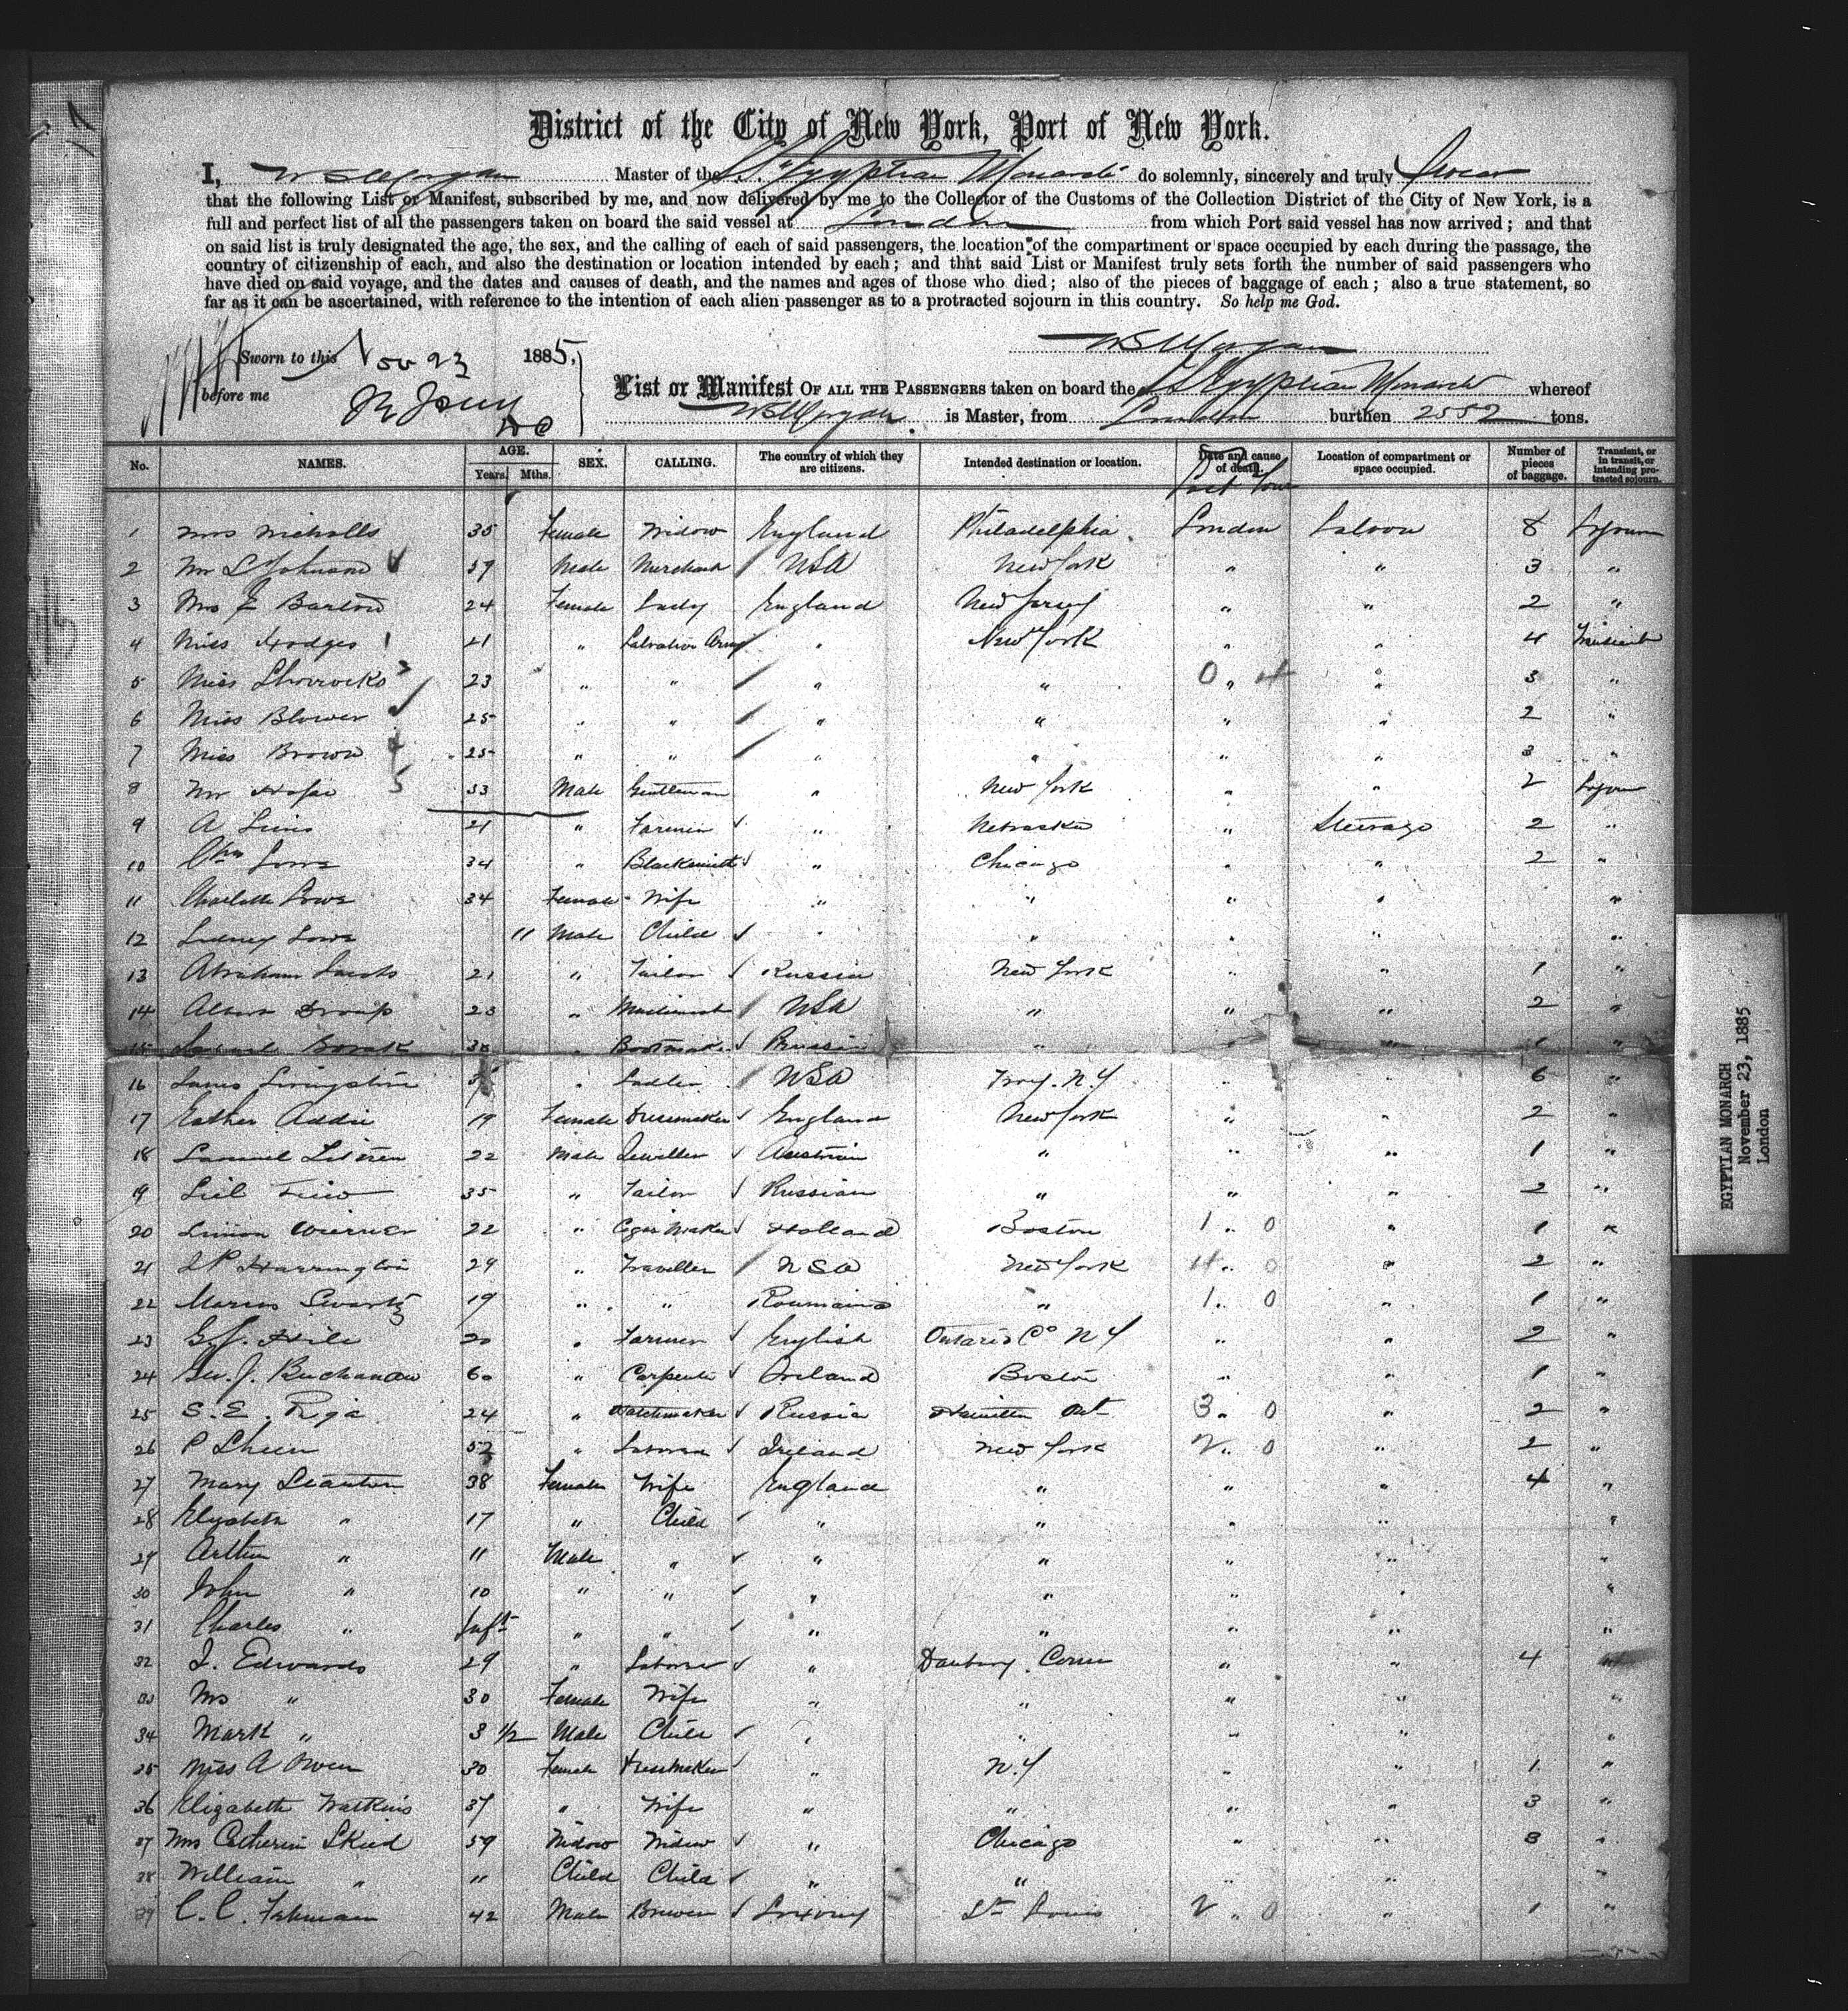 District of the City of New York, Port of New York.
I, W S Morgan Master of the SS. "Egyptian Monarch" do solemnly, sincerely and truly Swear
that the following List or Manifest, subscribed by me, and now delivered by me to the Collector of the Customs of the Collection District of the City of New York, is a
full and perfect list of all the passengers taken on board the said vessel at London from which Port said vessel has now arrived; and that
on said list is truly designated the age, the sex, and the calling of each of said passengers, the location of the compartment or space occupied by each during the passage, the
country of citizenship of each, and also the destination or location intended by each; and that said List or Manifest truly sets forth the number of said passengers who
have died on said voyage, and the dates and causes of death, and the names and ages of those who died; also of the pieces of baggage of each; also a true statement, so
far as it can be ascertained, with reference to the intention of each alien passenger as to a protracted sojourn in this country. So help me God.
W S Morgan
Sworn to this Nov 23 1885.
before me
List or Manifest OF ALL THE PASSENGERS taken on board the SS Egyptian Monarch whereof
W S Morgan is Master, from London burthen 2552 tons.
No. NAMES. AGE. Years. Mths. SEX. CALLING. The country of which they are citizens. Intended destination or location. Date and cause of death. Location of compartment or space occupied. Number of pieces of baggage. Transient, or in transit, or intending protracted sojourn.
1 Mrs Nicholls 35 Female Widow England Philadelphia London Saloon 8 Sojourn
2 Mr S Johnson 59 Male Merchant USA New York " " 3 "
3 Mrs E Barlow 24 Female Lady England New Jersey " " 2 "
4 Miss Hodges 21 " Salvation Army " New York " " 4 Transient
5 Miss Shorrocks 23 " " " " " " 3 "
6 Miss Blower 25 " " " " " " 2 "
7 Miss Brown 25 " " " " " " 3 "
8 Mr 33 Male Gentleman " New York " " 2 Sojourn
9 A 21 " Farmer " Nebraska " Steerage 2 "
10 34 " Blacksmith " Chicago " " 2 "
11 Charlotte Lowe 34 Female Wife " " " " "
12 Sidney Lowe 11 Male Child " " " " "
13 Abraham Jacobs 21 " Tailor Russia New York " " 1 "
14 Albert 23 " Machinist USA " " " 2 "
15 Samuel Borak " Bootmaker Russia " " " 1 "
16 Livingstone " Sadler USA Troy. N.Y " " 6 "
17 Esther Addie 19 Female Dressmaker England New York " " 2 "
18 Samuel 22 Male Jeweller Austrian " " " 1 "
19 35 " Tailor Russian " " " 2 "
20 Simon 22 " Cigar Maker Holland Boston 1 " 0 " 1 "
21 Harrington 29 " Traveller USA New York 4 " 0 " 2 "
22 Marcus Swartz 19 " " Roumania " 1 " 0 " 1 "
23 G. J. Hile 20 " Farmer English Ontario Co N Y " " 2 "
24 Geo. J. Buchanan 60 " Carpenter Ireland Boston " " 1 "
25 S. E. Riga 24 " Watchmaker Russia Hamilton Ont 3 " 0 " 2 "
26 P Sheen 52 " Laborer Ireland New York 2 " 0 " 2 "
27 Mary Stanton 38 Female Wife England " " " 4 "
28 Elizabeth " 17 " Child " " " " "
29 Arthur " 11 Male " " " " " "
30 John " 10 " " " " " " "
31 Charles " Inft " " " " " " "
32 J. Edwards 29 " Laborer " Danbury. Conn " " 4 "
33 Mrs " 30 Female Wife " " " " "
34 Mark " 3 1/2 Male Child " " " " "
35 Miss A Owen 30 Female Dressmaker " N.Y " " 1 "
36 Elizabeth Watkins 37 " Wife " " " " 3 "
37 Mrs Catherine Skied 59 Widow Widow " Chicago " " 3 "
38 William " 11 Child Child " " " " "
39 C. C. Fehman 42 Male Brewer Saxony St Louis 2 " 0 " 1 "
EGYPTIAN MONARCH
November 23, 1885
London